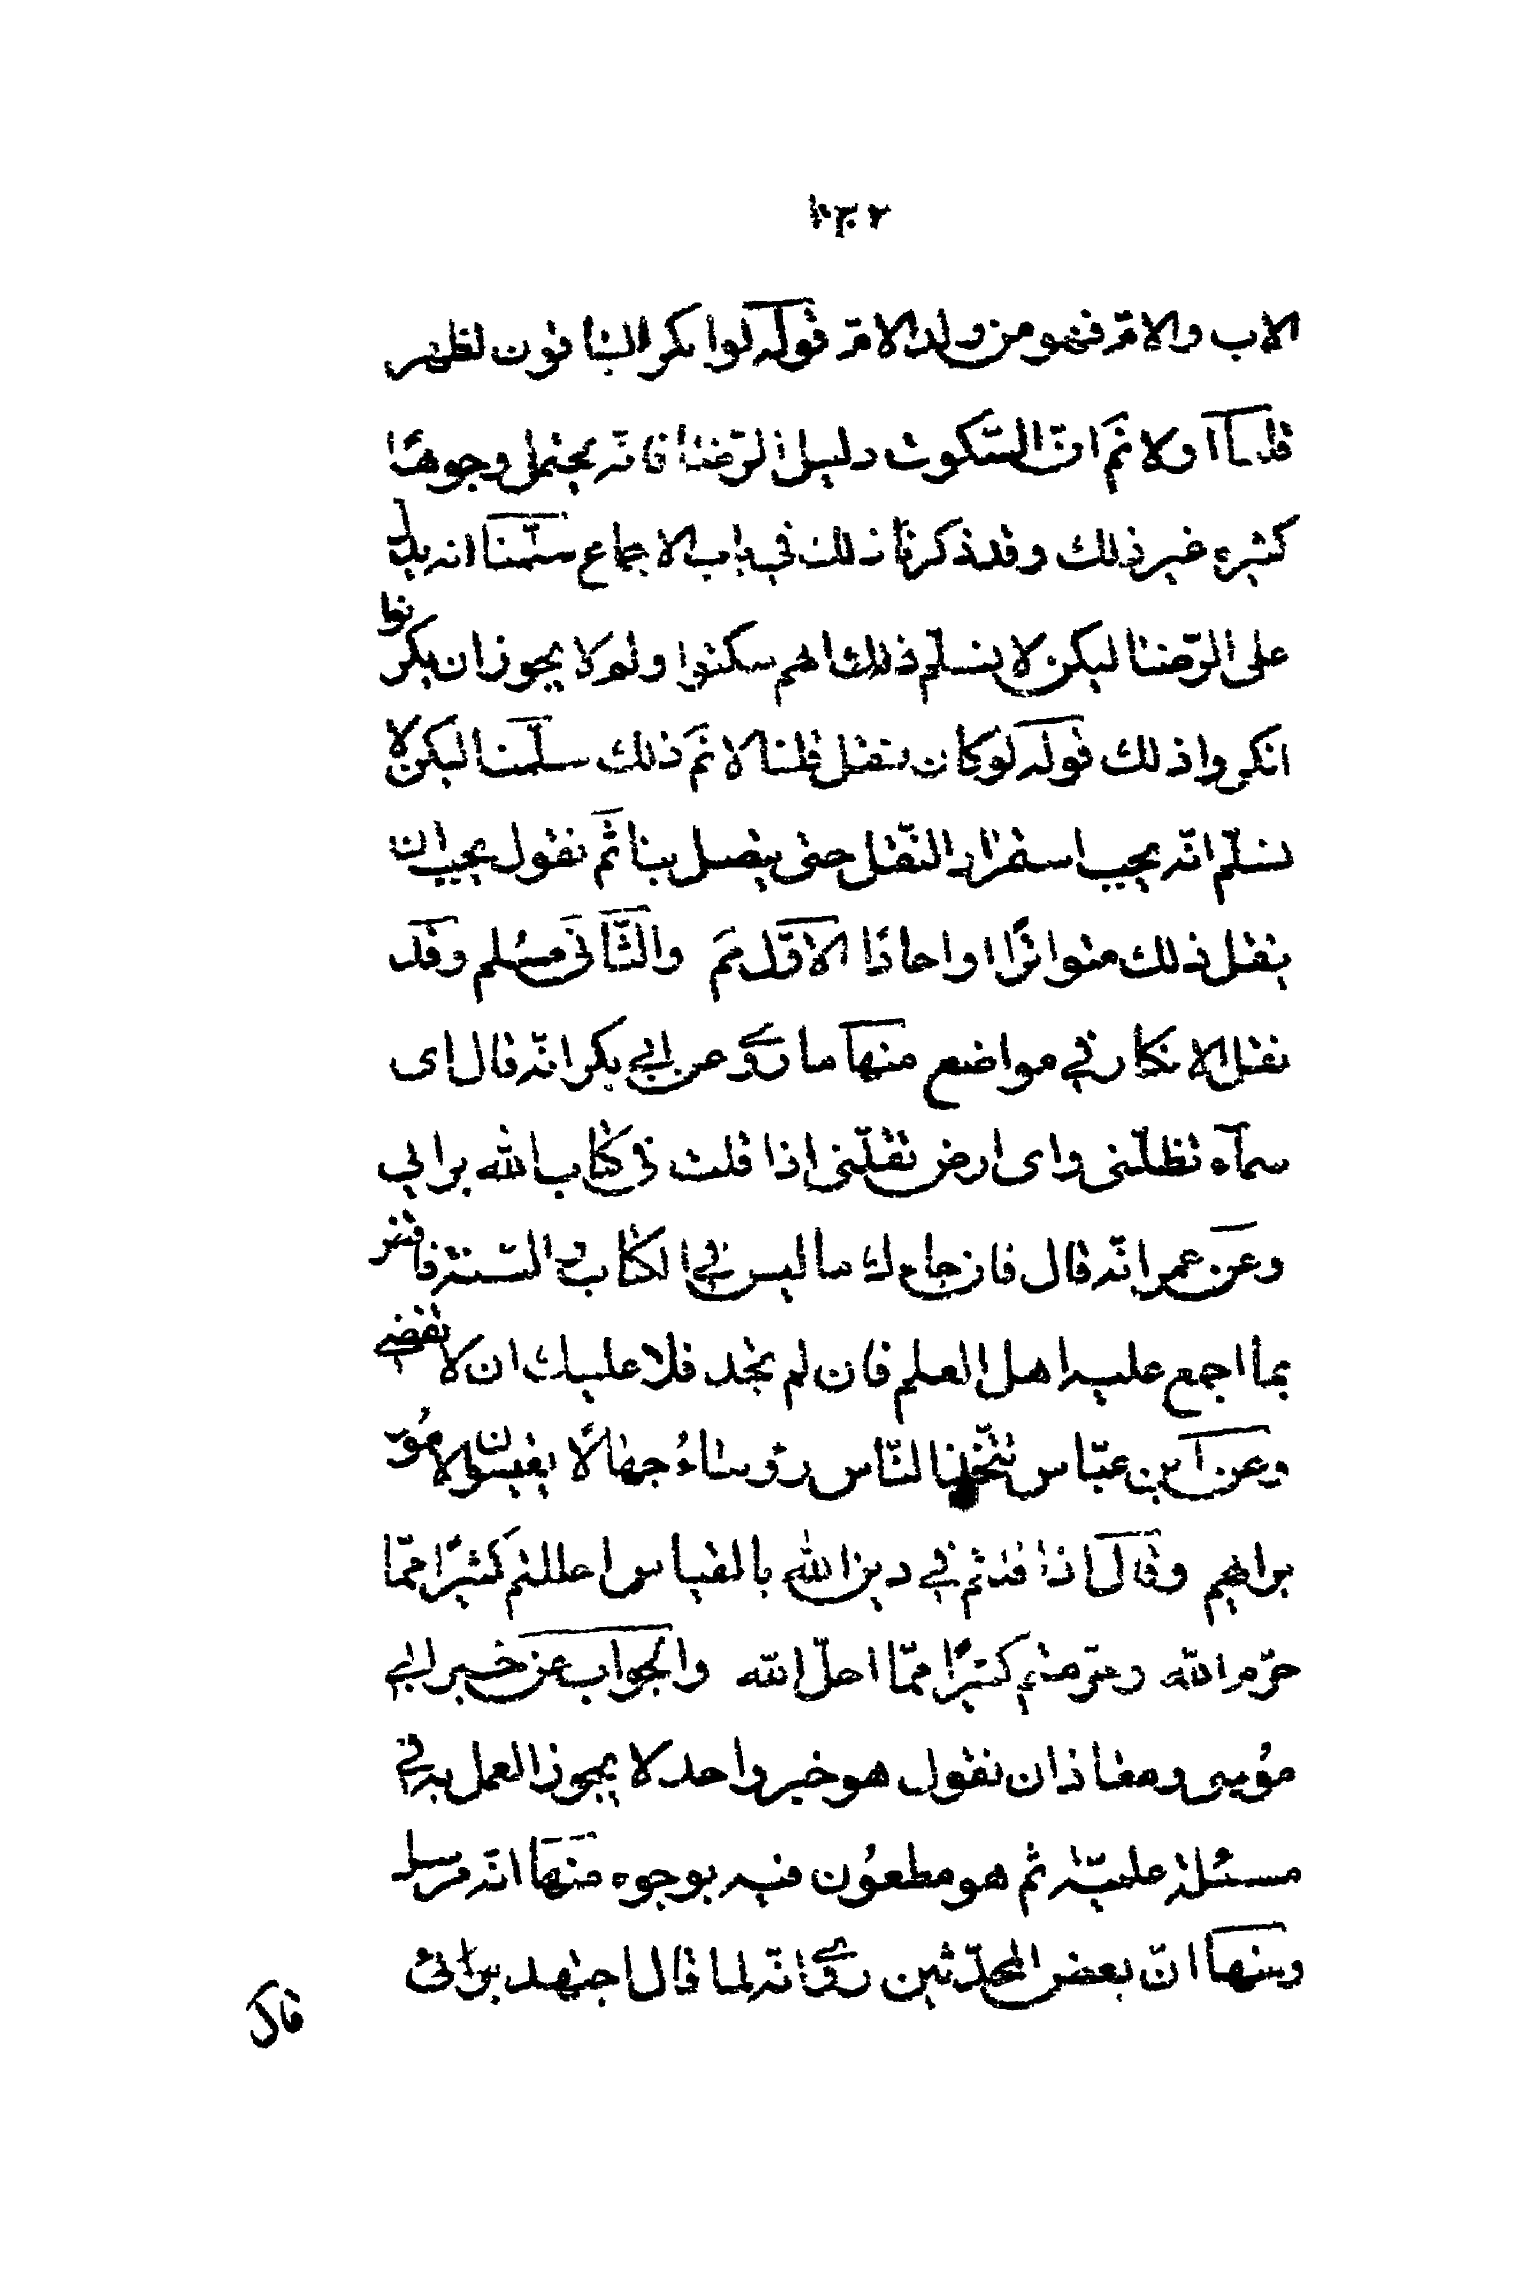 الاب والامّ فهو من ولد الامّ قوله لو انكر الباقون لظهر
قلنا اولا نم انّ السّكوت دليل الرّضا فانّه يحتمل وجوهًا
كثيره غير ذلك وقد ذكرنا ذلك في باب الاجماع سلّمنا انه يدلّ
على الرّضا ليكن لا نسلّم ذلك انهم سكتوا ولم لا يجوز ان يكونوا
انكروا ذلك قوله لو كان نقل قلنا لا نم ذلك سلّمنا لكن لا
نسلّم انّه يجب استمرار النّقل حتى يتصل بنا ثم نقول يجب ان
ينقل ذلك متواترًا او احادًا الاوّل مم والثّاني مسلم وقد
نقل الانكار في مواضع منها ما روى عن ابي بكر انّه قال اى
سمآء تظلّنى واى ارض تقلّنى اذا قلت في كتاب الله برايي
وعن عمر انّه قال فان جاءك ما ليس في الكتاب والسّنة فاقض
بما اجمع عليه اهل العلم فان لم تجد فلا عليك ان لا تقضي
وعن ابن عباس يتّخذ النّاس رؤساءُ جهالًا يقيسون الامُور
برايهم وقال اذا قلتم في دين الله بالقياس احللتم كثيرًا ممّا
حرّم الله وحرّمتم كثيرًا ممّا احلّ الله والجواب عن خبر ابي
مُوسى ومعاذ ان نقول هو خبر واحد لا يجوز العمل به في
مسئلة علميّة ثم هو مطعُون فيه بوجوه منها انّه مرسل
ومنها انّ بعض المحدّثين روى انّه لما قال اجتهد برائى
قال